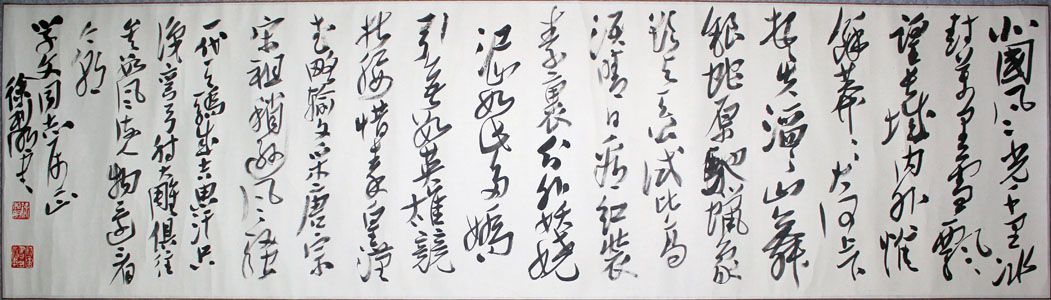 北國風光千里冰
封萬里雪飄
望長城内外惟
餘莽莽大河上下
頓失滔滔山舞
銀蛇原馳蠟象
欲與天公試比高
須晴日看紅裝
素裹分外妖嬈
江山如此多嬌
引無數英雄競
折腰惜秦皇漢
武略輸文采唐宗
宋祖稍遜風騷
一代天驕成吉思汗只
識彎弓射大雕俱往
矣數風流人物還看
今朝
学文同志正
徐书